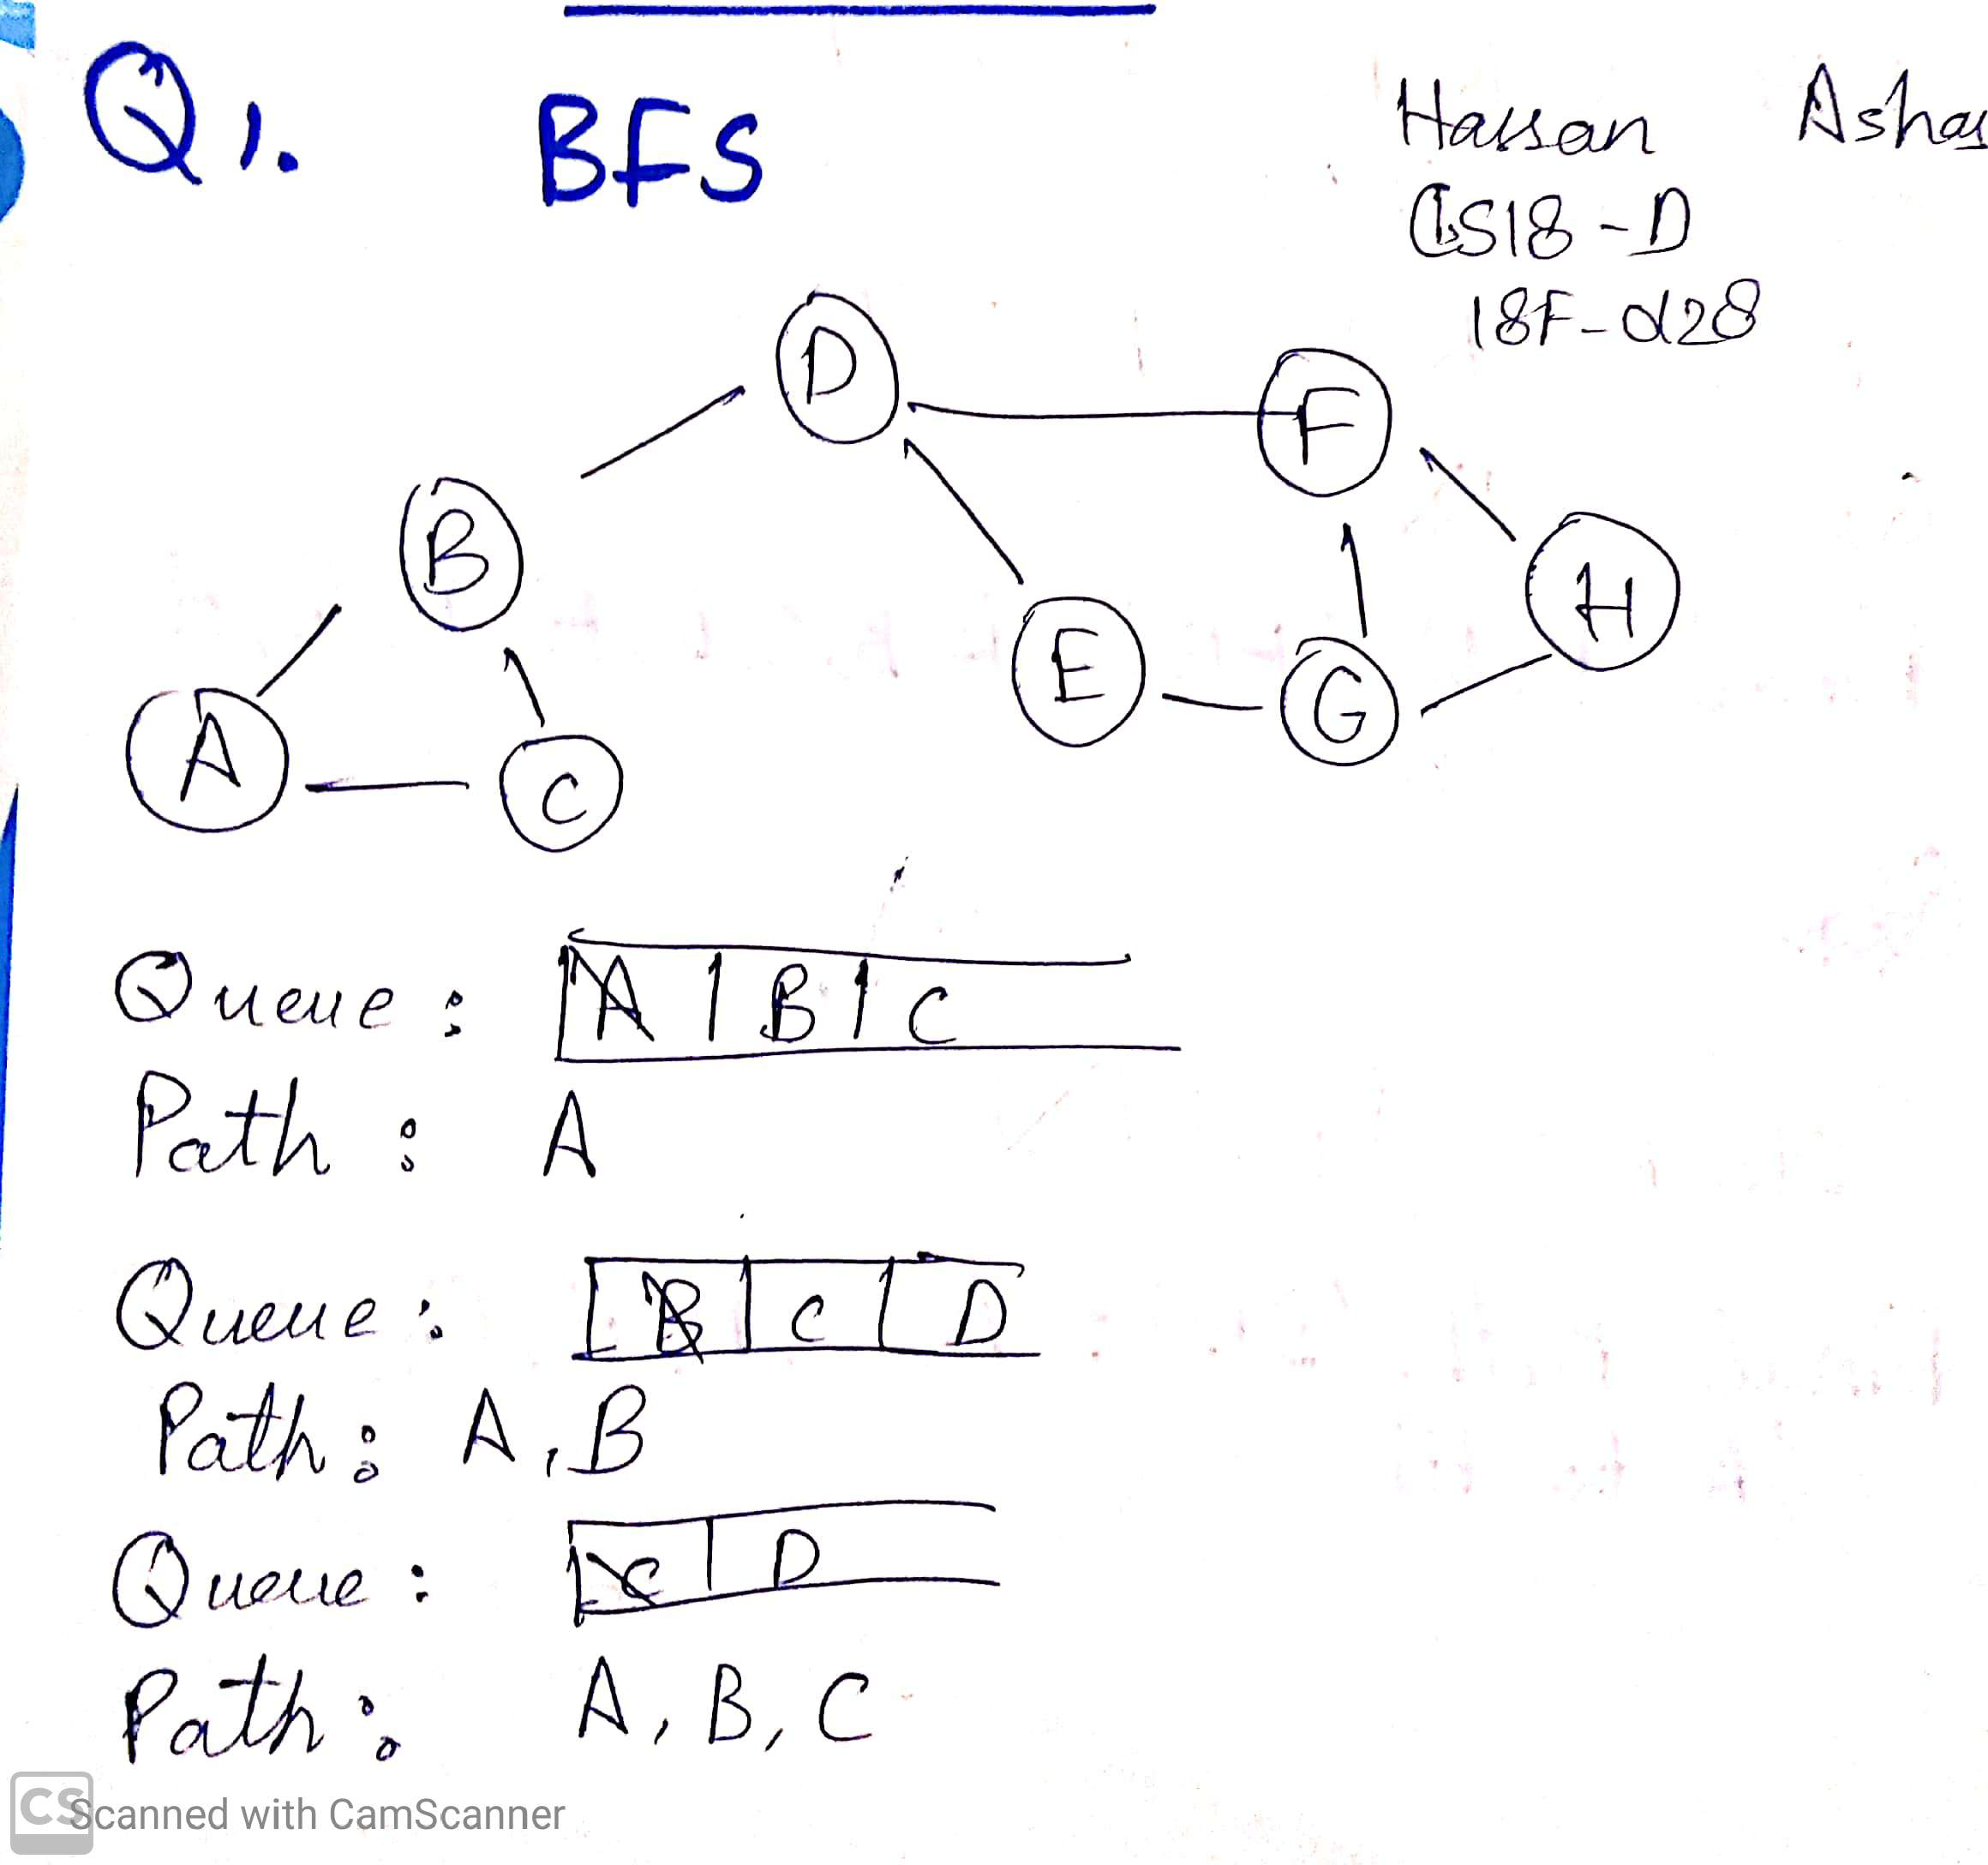 Q1. BFS
Hassan
CS18-D
18F-0128
D
F
B
H
E
G
A
C
Queue: A B C
Path: A
Queue: B C D
Path: A, B
Queue: C D
Path: A, B, C
CS Scanned with CamScanner